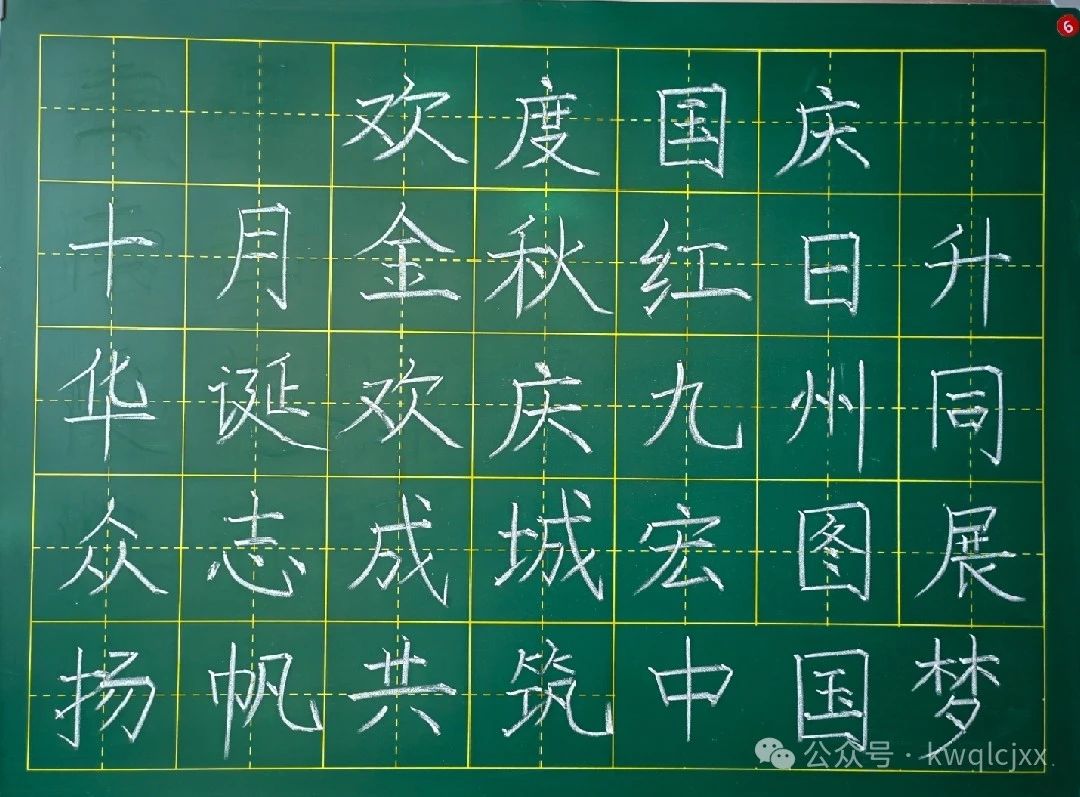 6
欢度国庆
十月金秋红日升
华诞欢庆九州同
众志成城宏图展
扬帆共筑中国梦
公众号·kwqlcjxx